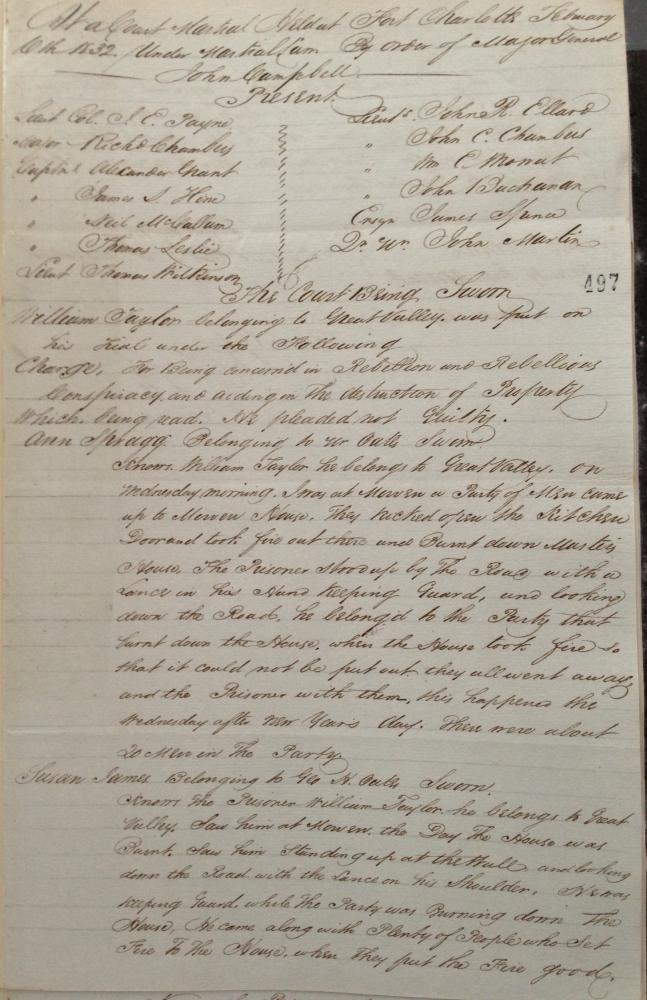 At a Court Martial Held at Fort Charlotte February
6th 1832, Under Martial Law By order of Major General
John Campbell.
Present
Lieut Col. J. E. Payne Lieuts. John R. Ellard
Major Richd Chambers " John C. Chambers
Captns Alexander Grant " Wm C. Morrat
" James S. Hine " John Buchanan
" Neil McCallum Ensgn James Spence
" Thomas Leslie Qr. Mr. John Martin
Lieut Thomas Wilkinson
The Court Being Sworn
497
William Taylor belonging to Great Valley. was put on
his trial under the Following
Charge, For Being concerned in Rebellion and Rebellious
Conspiracy and aiding in the destruction of Property
Which being read, He pleaded not Guilty.
Ann Spragg Belonging to Mr Oates Sworn
Knows William Taylor he belongs to Great Valley. on
Wednesday morning. I was at Mowen a Party of Men came
up to Mowen House. They kicked open the Kitchen
Door and took fire out there and Burnt down Master's
House, The Prisoner Stood up by The Road with a
Lance in his Hand Keeping Guard, and looking
down the Road, he belong'd to the Party that
burnt down the House. when the House took fire so
that it could not be put out they all went away
and the Prisoner with them, this happened the
Wednesday after New Year's day. There were about
20 Men in The Party
Susan James Belonging to Geo H. Oates Sworn.
Knows The Prisoner William Taylor he belongs to Great
Valley. Saw him at Mowen. the Day The House was
Burnt. Saw him Standing up at the Wall and looking
down the Road with the Lance on his Shoulder. He was
keeping Guard while The Party was Burning down The
House, He came along with Plenty of People who Set
Fire To The House, when they put the Fire good.